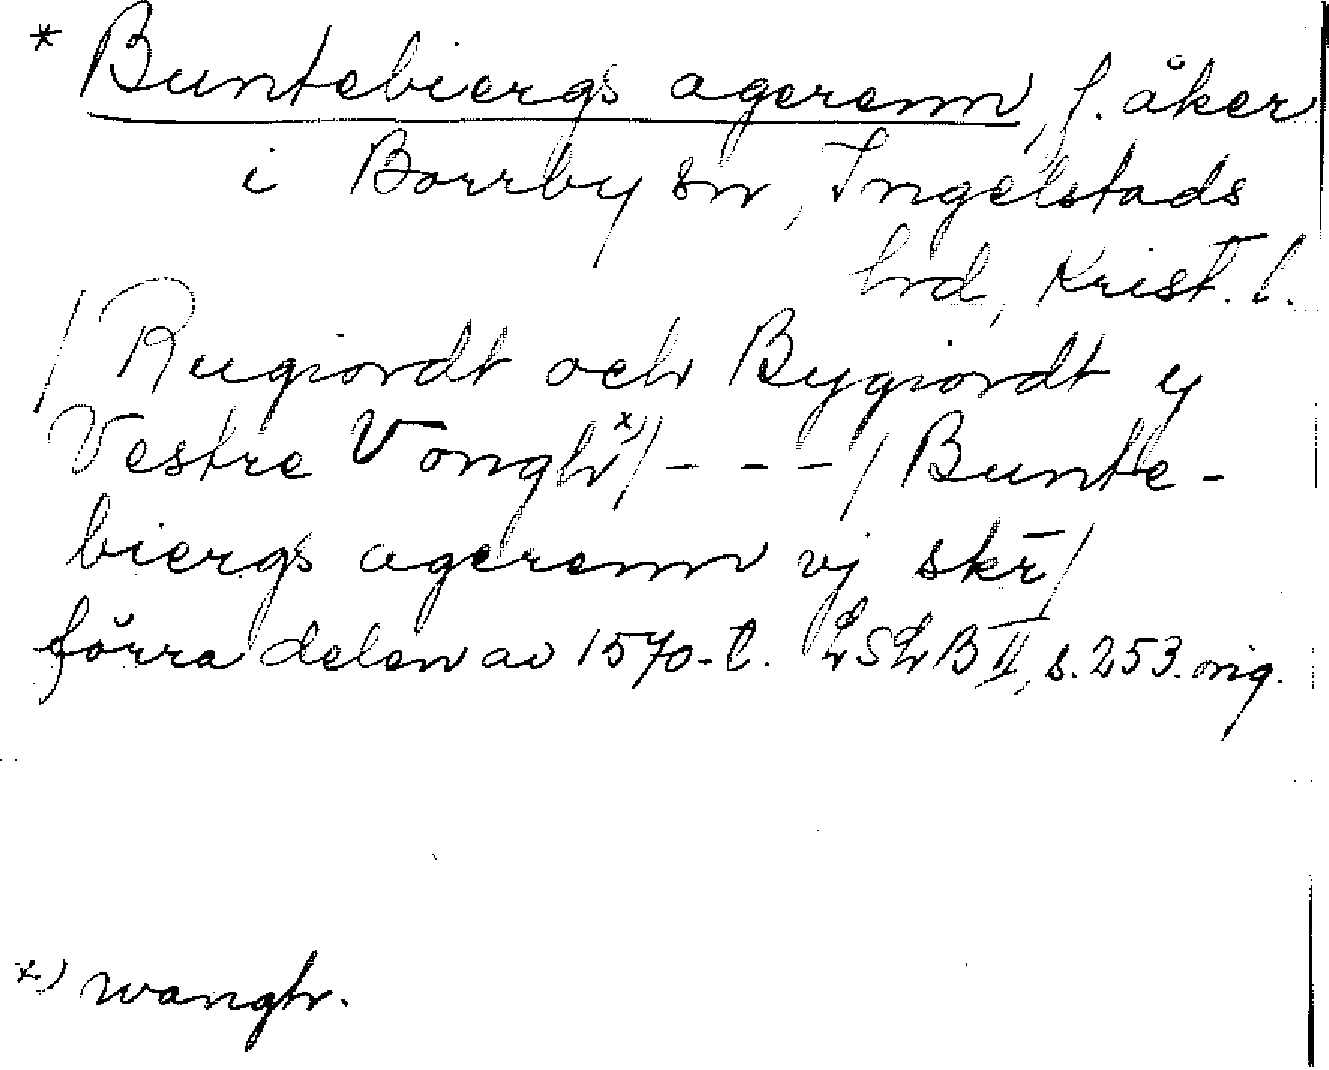 * Buntebiergs agerenn, f. åker
i Borrby sn, Ingelstads
hd, Krist. l.
/Rugiordt och Bygiordt y
Vestre Vongh x)/ - - - / Bunte-
biergs agerenn vj skr/
förra delen av 1570-t. LSLB II, s. 253. orig.
x) wangh.